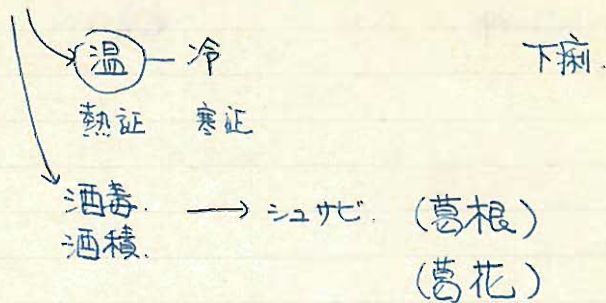 温 — 冷 下痢.
熱証 寒証
酒毒. → シュサビ. (葛根)
酒積. (葛花)